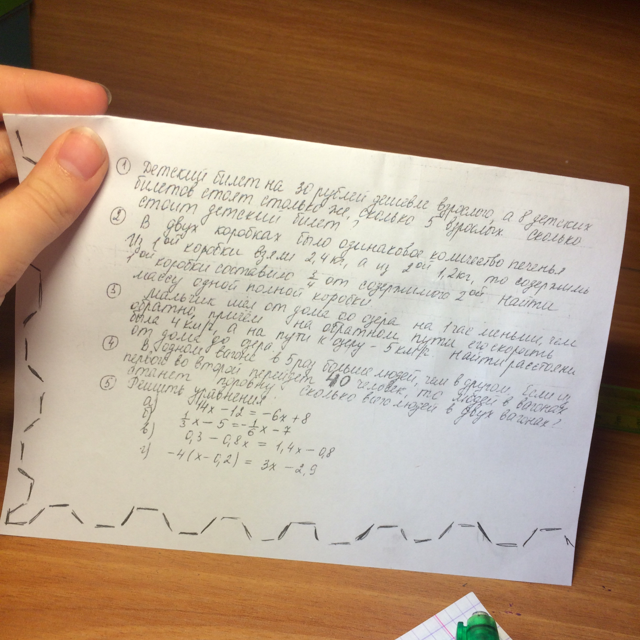 ① Детский билет на 30 рублей дешевле взрослого, а 8 детских
билетов стоят столько же, сколько 5 взрослых сколько
стоит детский билет?
② В двух коробках было одинаковое количество печенья
Из 1ой коробки взяли 2,4 кг, а из 2ой 1,2 кг, то содержимое
1ой коробки составило 1/4 от содержимого 2ой. Найти
массу одной полной коробки
③ Мальчик шёл от дома до озера на 1 час меньше, чем
обратно, причём на обратном пути его скорость
была 4 км/ч, а на пути к озеру - 5 км/ч. Найти расстояние
от дома до озера
④ В одном вагоне в 5 раз больше людей, чем в другом. Если из
первого во второй перейдёт 40 человек, то людей в вагонах
станет поровну. Сколько всего людей в двух вагонах?
⑤ Решить уравнения:
а) 14x - 12 = -6x + 8
б) 1/3x - 5 = -1/6x - 7
в) 0,3 - 0,8x = 1,4x - 0,8
г) -4(x - 0,2) = 3x - 2,9